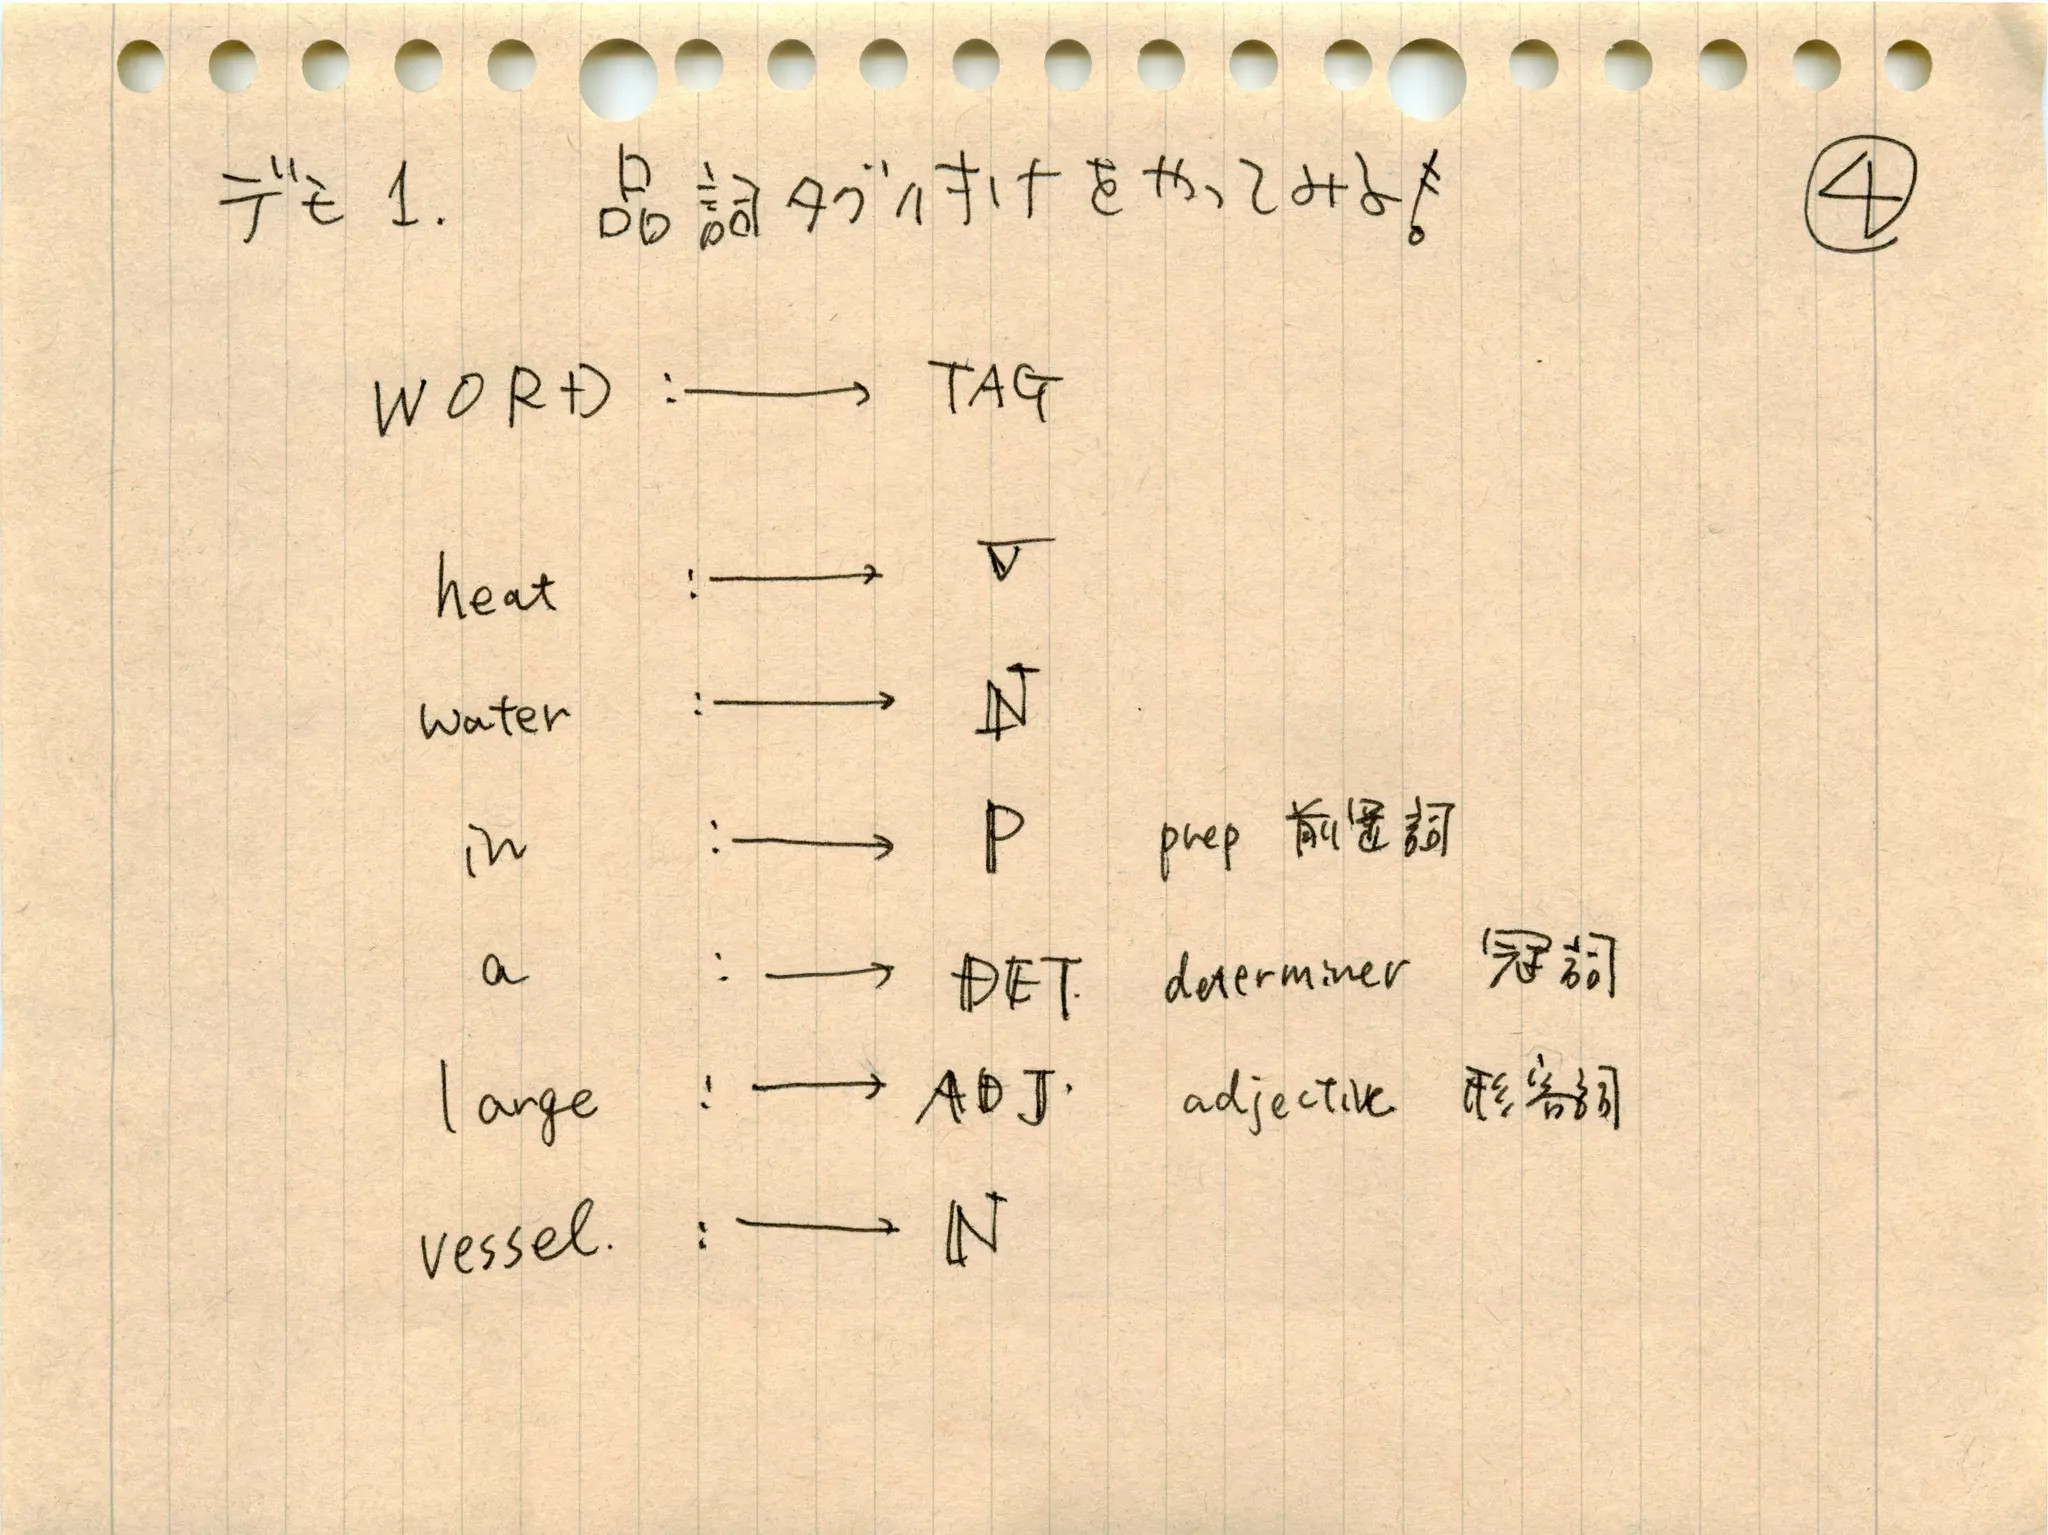 デモ 1. 品詞タグ付けをやってみよ! ④
WORD :→ TAG
heat :→ V
water :→ N
in :→ P prep 前置詞
a :→ DET. determiner 冠詞
large :→ ADJ. adjective 形容詞
vessel. :→ N